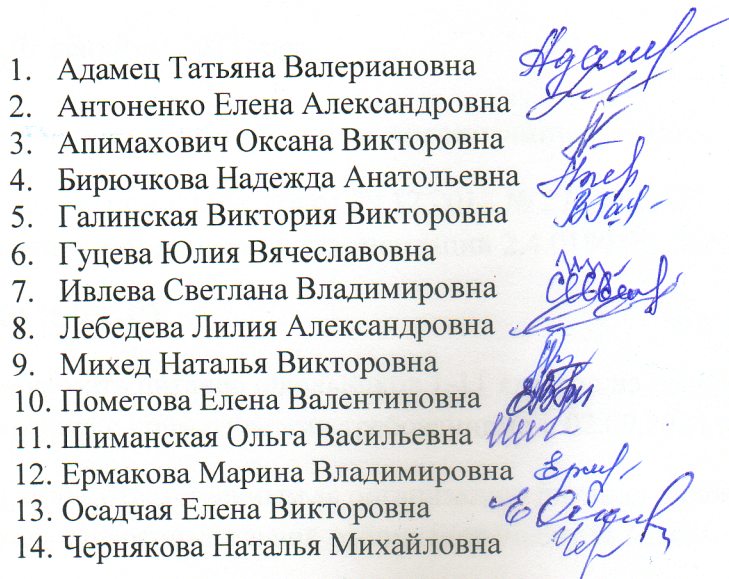 1. Адамец Татьяна Валериановна
2. Антоненко Елена Александровна
3. Апимахович Оксана Викторовна
4. Бирючкова Надежда Анатольевна
5. Галинская Виктория Викторовна
6. Гуцева Юлия Вячеславовна
7. Ивлева Светлана Владимировна
8. Лебедева Лилия Александровна
9. Михед Наталья Викторовна
10. Пометова Елена Валентиновна
11. Шиманская Ольга Васильевна
12. Ермакова Марина Владимировна
13. Осадчая Елена Викторовна
14. Чернякова Наталья Михайловна